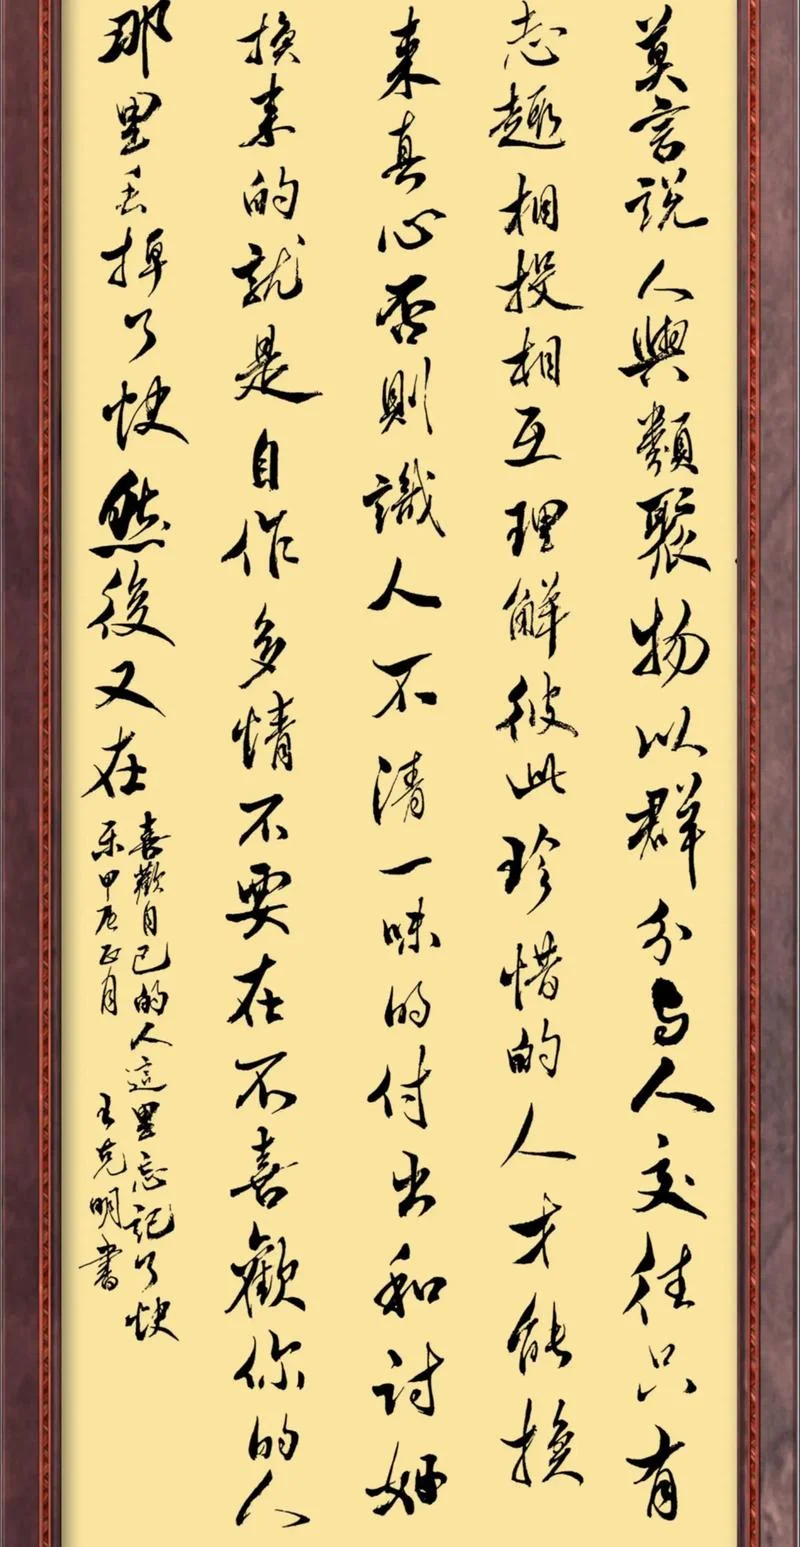 莫言説人與類聚物以群分与人交往只有
志趣相投相互理解彼此珍惜的人才能換
来真心否則識人不清一味的付出和討好
換来的就是自作多情不要在不喜歡你的人
那里丢掉了快然後又在
喜歡自己的人這里忘記了快
乐甲辰正月
王克明書